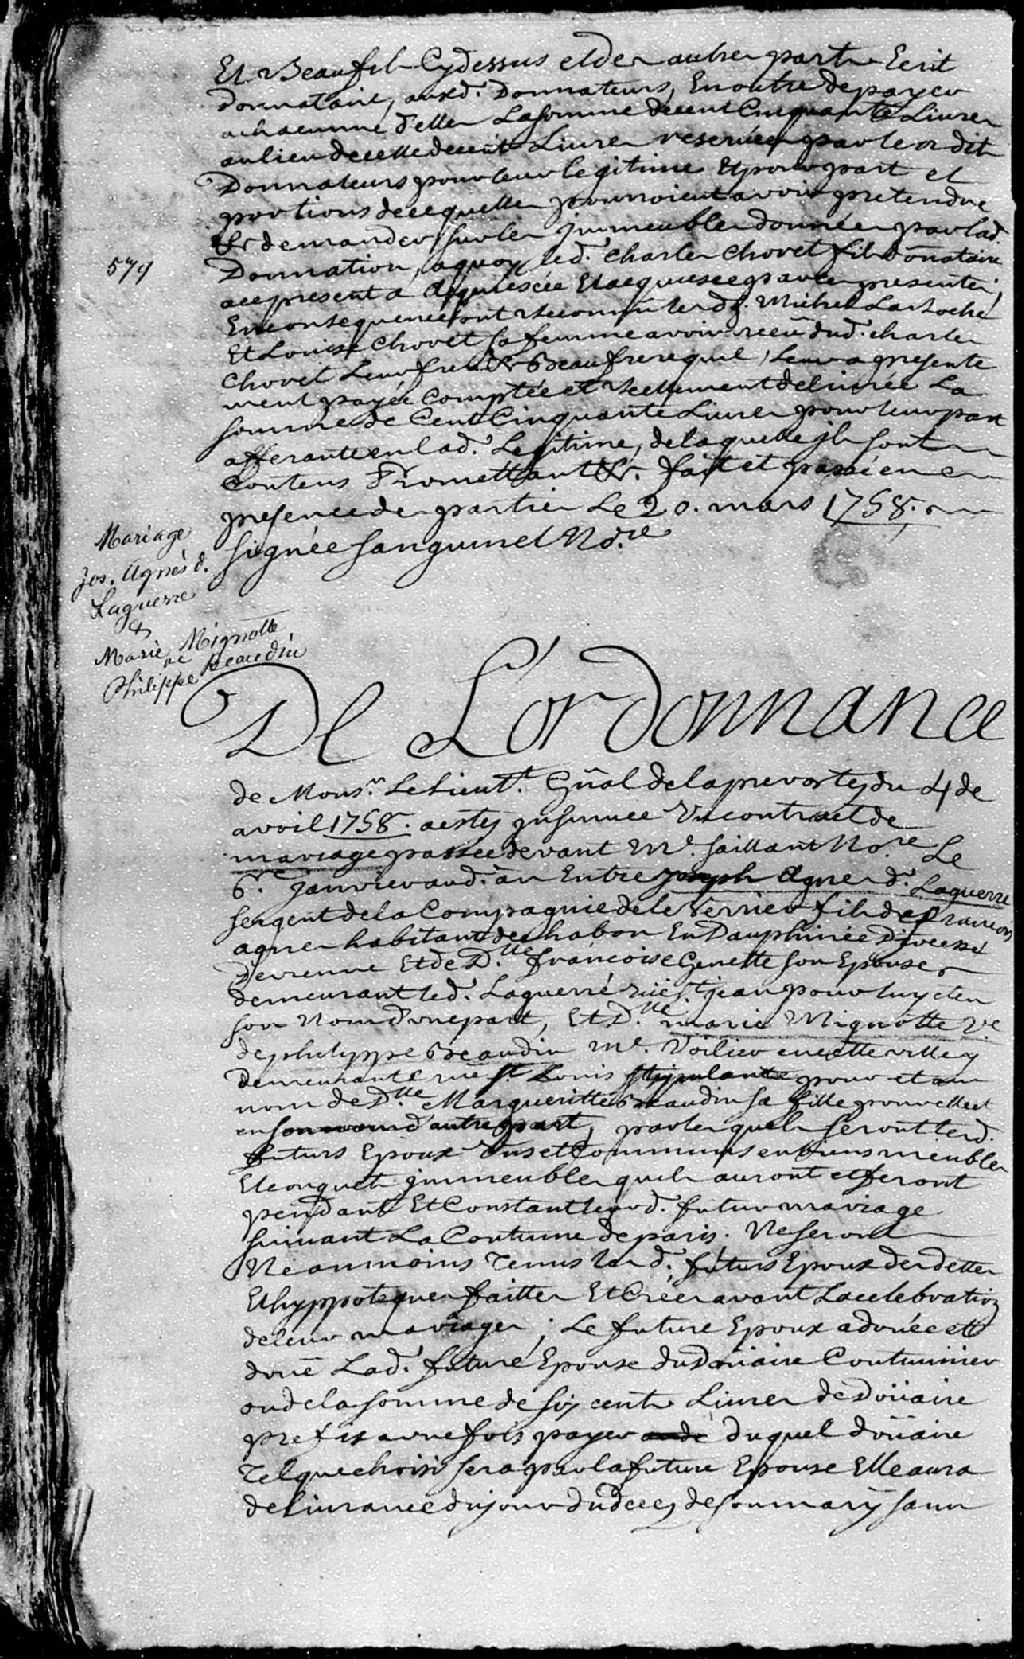 Et Beaufils Cydessus et des autres parts Ecrit
donnataire, auxd. Donnateurs, En outre de payer
a chacunne d'elles La somme de cent Cinquante Livres
au lieu de celle de cent Livres reservées par lesdits
Donnateurs pour leur legitime Et pour part et
portions de ce quelles pourroient avoir pretendre
Et demander sur les jmmeubles donnée par lad.
579
Donnation, aquoy led. Charles Chovet fils Donataire
a ce present a acquiescée Et acquiesce par ces presentes,
En consequence ont reconnu lesd. Michel Laroche
Et Louise Chovet sa femme avoir reçu dud. charles
Chovet Leur frere & Beaufrere qui Leur a presente
ment payée Comptée et reellement delivrée La
somme de Cent Cinquante Livres pour leur part
afferante en lad. Legitime, de laquelle jls sont
Contens Promettant &c. fait et passé en
presence des parties Le 20. mars 1758.
signée Sanguinet No.re
Mariage
Jos. Agnès d.
Laguerre
&
Marie Mignotte
ve
Philippe Beaudin
De L'ordonnance
de Mons.r Le Lieut.t Gñal de la prevostey du 4 de
avril 1758. a estey jnsinuée Un contract de
mariage passée devant M.e Saillant No.re Le
6.e Janvier aud. an Entre Joseph Agnes d. Laguerre
sergent de la Compagnie de le Verrier fils de francois
agnes habitant de chabon En Dauphinée Diocesse
de vienne Et de D.lle francoise Genette son Epouse
demeurant led. Laguerre rüe S.t jean pour luy et en
son Nom d'une part, Et D.lle marie Mignotte V.e
de philyppe Beaudin M.e Voilier en cette ville y
demeurante rüe S.t Louis stipulante pour et au
nom de D.lle Margueritte Beaudin sa fille pour elle et
en son nom d'autre part, par lesquels seront lesd.
futurs Epoux Uns et Communs en biens meubles
Et conquets jmmeubles quils auront et feront
pendant Et Constant leurd. futur mariage
suivant La Coutume de paris. Ne seront
Neanmoins Tenus lesd. futurs Epoux des dettes
Et hyppoteques faittes Et Créés avant La celebration
de leur mariage; Le future Epoux a douée et
doue Lad. future Epouse du doüaire Coutumier
ou de la somme de six cents Livres de Doüaire
prefix a une fois payer duquel doüaire
Tel que choisi sera par la future Epouse Elle aura
delivrance du jour du deces de son mary sans